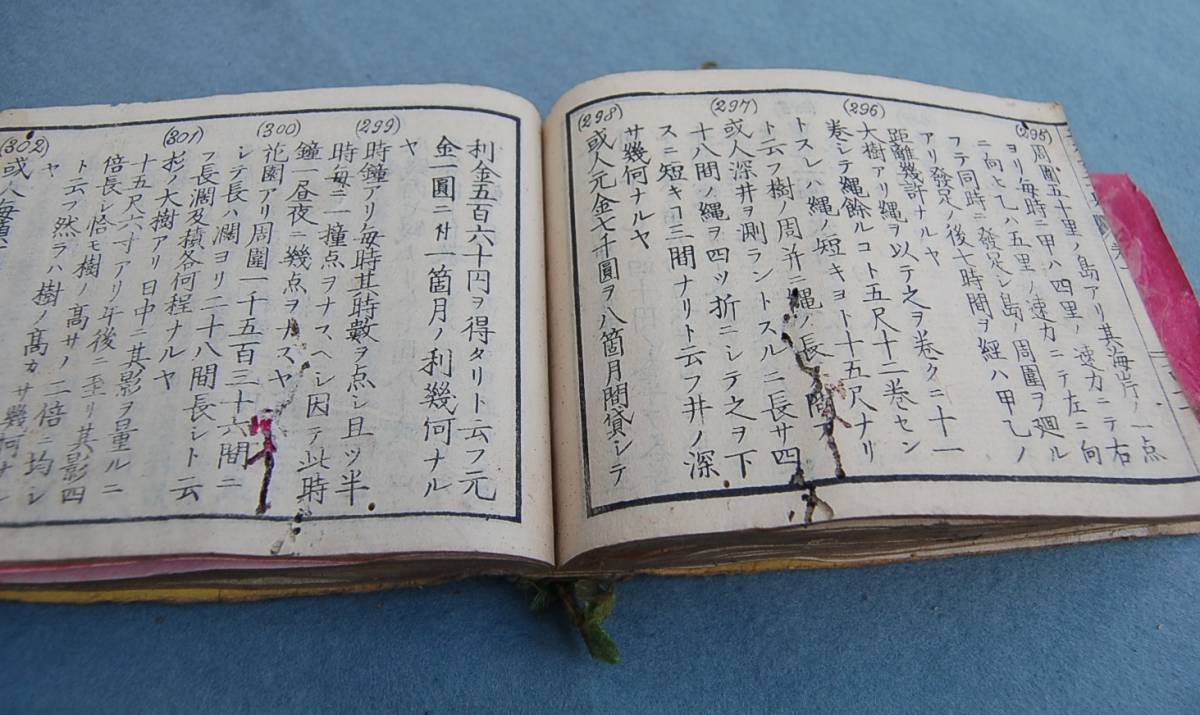 (295)
周圍五十里ノ島アリ其海岸ノ一点
ヨリ毎時ニ甲ハ四里ノ速力ニテ右
ニ向ヒ乙ハ五里ノ速力ニテ左ニ向
フテ同時ニ發足シ島ノ周圍ヲ廻ル
アリ發足ノ後七時間ヲ經ハ甲乙ノ
距離幾許ナルヤ
(296)
大樹アリ縄ヲ以テ之ヲ巻クニ十一
巻シテ縄餘ルコト五尺十二巻セン
トスレハ縄ノ短キヿ十五尺ナリ
ト云フ樹ノ周并ニ縄ノ長
(297)
或人深井ヲ測ラントスルニ長サ四
十八間ノ縄ヲ四ツ折ニシテ之ヲ下
スニ短キヿ三間ナリト云フ井ノ深
サ幾何ナルヤ
(298)
或人元金七千圓ヲ八箇月間貸シテ
利金五百六十円ヲ得タリト云フ元
金一圓ニ付一箇月ノ利幾何ナル
ヤ
(299)
時鐘アリ毎時其時數ヲ点シ且ツ半
時毎ニ一撞点ヲナスヘシ因テ此時
鐘一昼夜ニ幾点ヲナスヤ
(300)
花園アリ周圍一千五百三十六間ニ
シテ長ハ濶ヨリ二十八間長シト云
フ長濶及積各何程ナルヤ
(301)
杉ノ大樹アリ日中ニ其影ヲ量ルニ
十五尺六寸アリ午後ニ至リ其影四
倍長シ恰モ樹ノ高サノ二倍ニ均シ
ト云フ然ラハ樹ノ高カサ幾何ナル
ヤ
(302)
或人毎